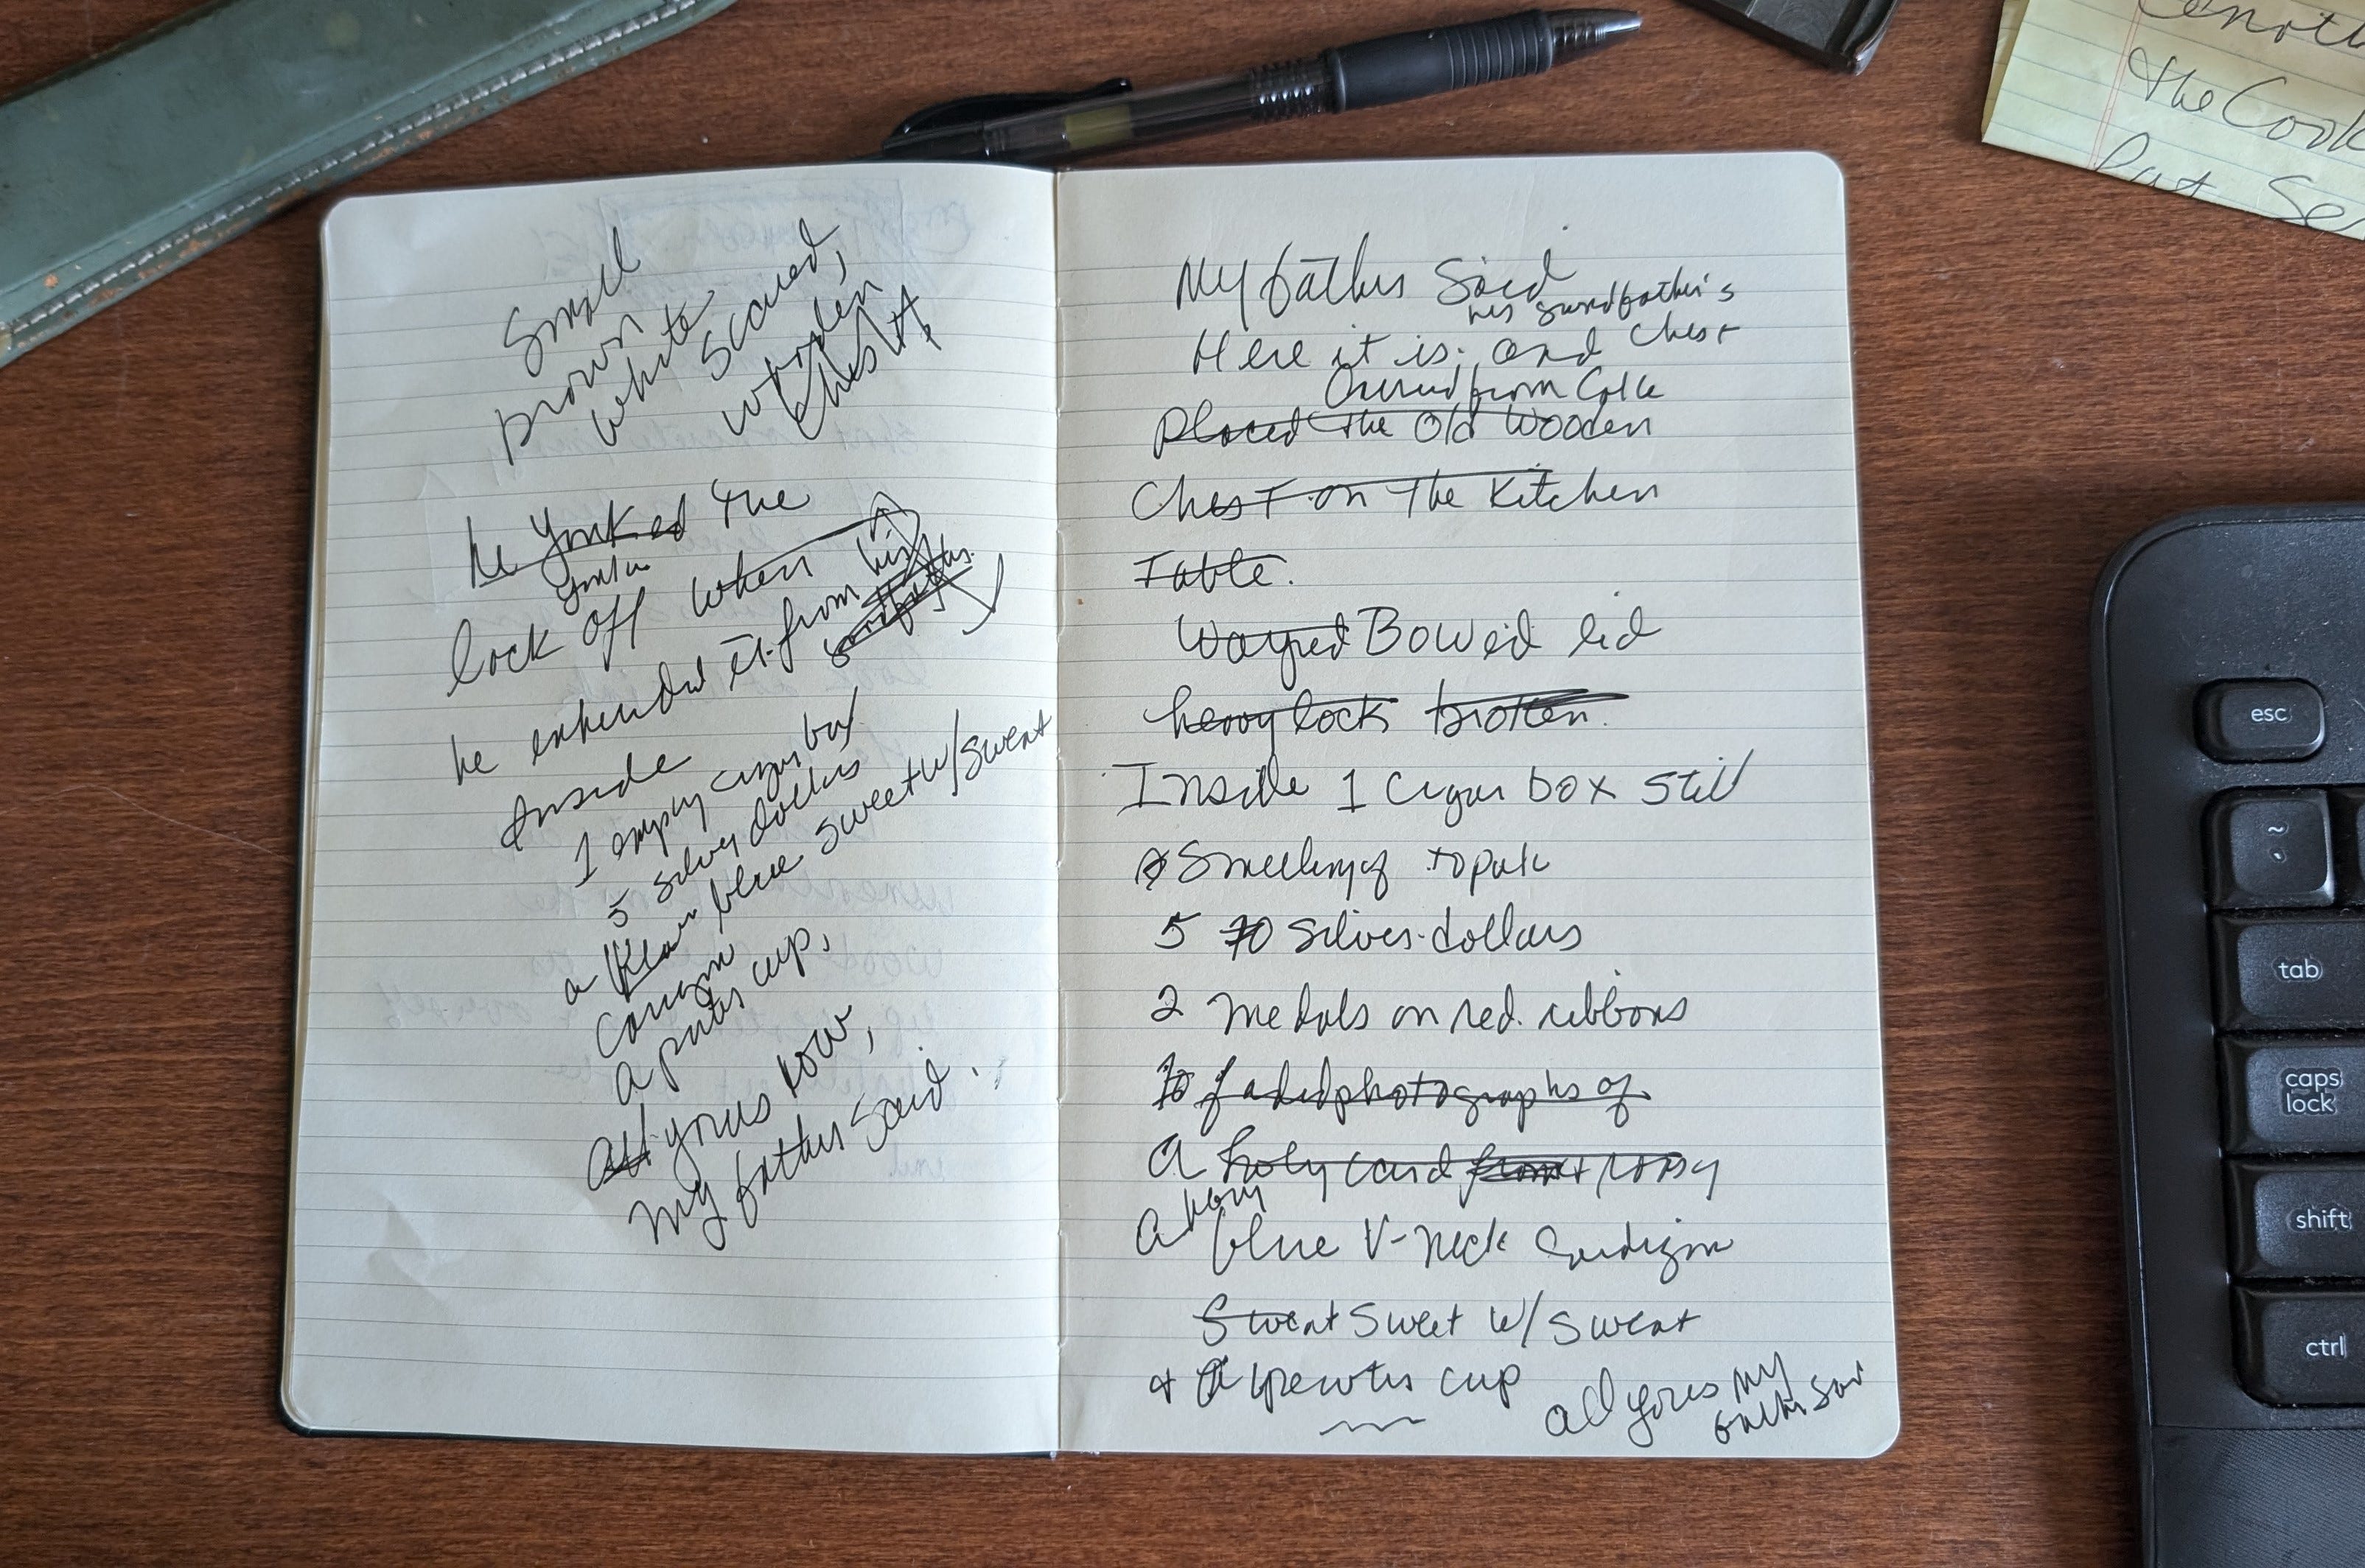 Small
brown
white
scared,
wooden
chest
he yanked the
yank
lock off when
he extended it from his
Inside
1 empty cigar box
5 silver dollars
a blue sweet w/sweat
a pewter cup,
all yours now,
my father said.
My father said
his grandfather's
Here it is. and chest
from
Placed the Old Wooden
Chest on The Kitchen
Table.
Warped Bowed lid
heavy lock broken.
Inside 1 cigar box still
smelling of
5 10 silver dollars
2 medals on red ribbons
10 faded photographs of
A holy card
A navy
blue V-neck Cardigan
Sweat sweet w/ sweat
& A pewter cup
all yours my
father said
the Cook
esc
~
`
tab
caps
lock
shift
ctrl